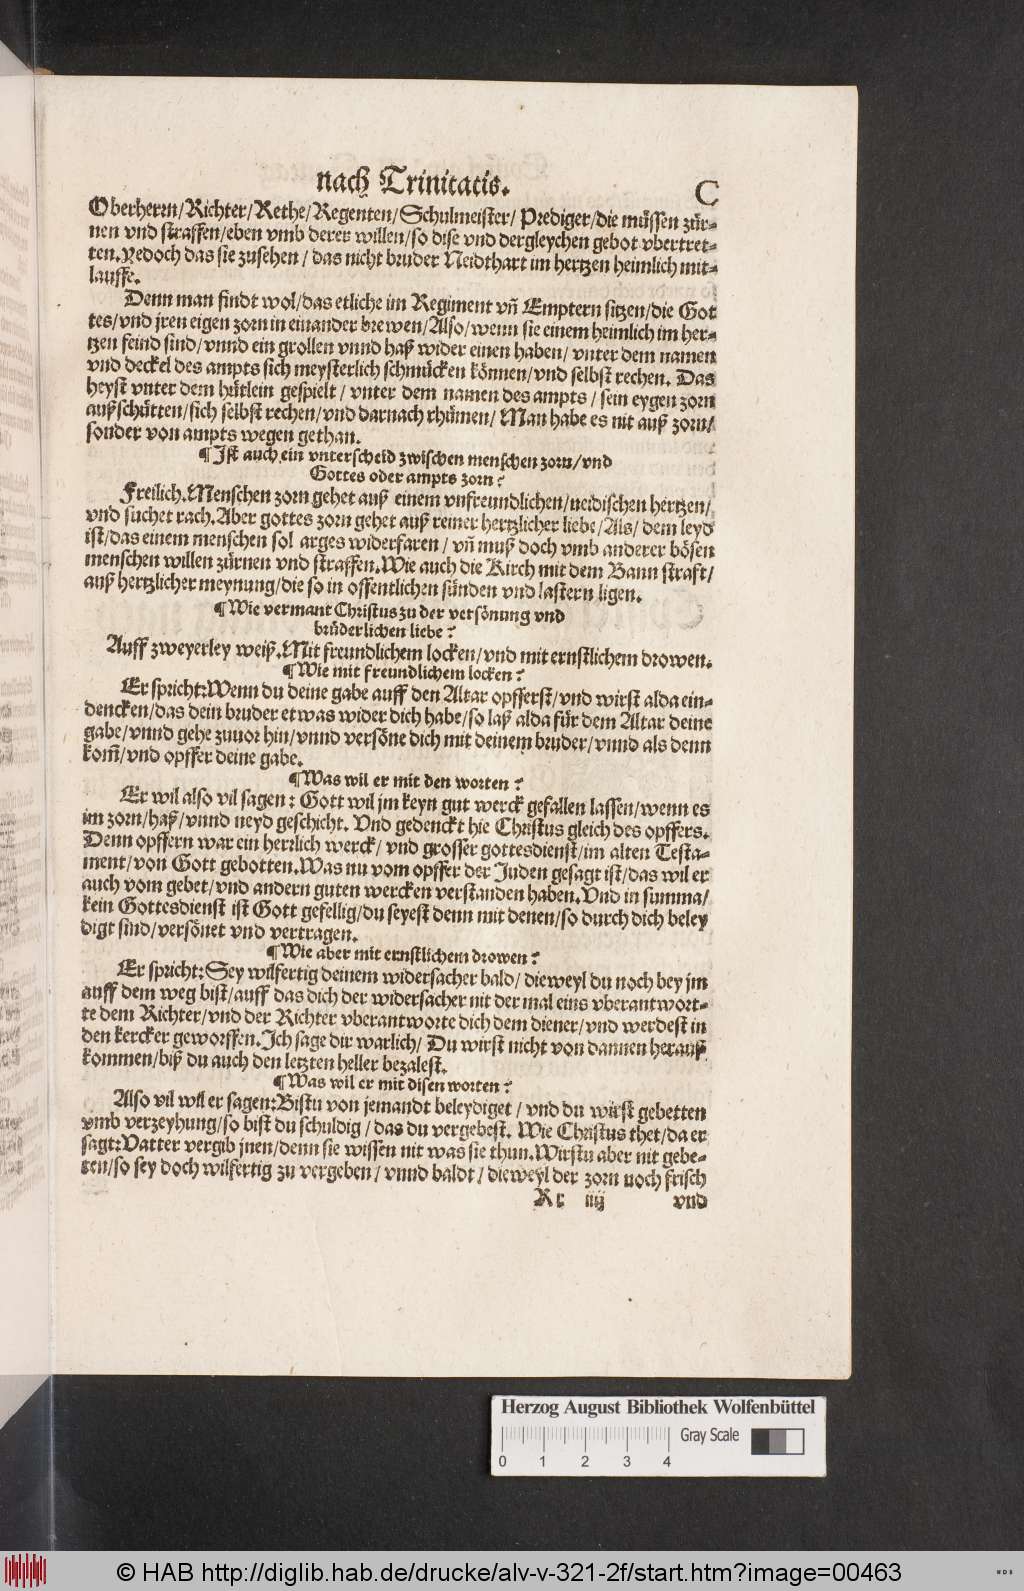 nach Trinitatis.
C
Oberherrn/Richter/Rethe/Regenten/Schulmeister/ Prediger/die müssen zür-
nen vnd straffen/eben vmb derer willen/so dise vnd dergleychen gebot vbertret-
ten.Yedoch das sie zusehen / das nicht bruder Neidthart im hertzen heimlich mit-
lauffe.
Denn man findt wol/das etliche im Regiment vñ Emptern sitzen/die Got
tes/vnd jren eigen zorn in einander brewen/Also/wenn sie einem heimlich im her-
tzen feind sind/vnnd ein grollen vnnd haß wider einen haben/ vnter dem namen
vnd deckel des ampts sich meysterlich schmücken können/vnd selbst rechen. Das
heyst vnter dem hütlein gespielt / vnter dem namen des ampts / sein eygen zorn
außschütten/sich selbst rechen/vnd darnach rhümen/ Man habe es nit auß zorn/
sonder von ampts wegen gethan.
¶ Ist auch ein vnterscheid zwischen menschen zorn/vnd
Gottes oder ampts zorn?
Freilich.Menschen zorn gehet auß einem vnfreundlichen/neidischen hertzen/
vnd suchet rach.Aber gottes zorn gehet auß reiner hertzlicher liebe/Als/ dem leyd
ist/das einem menschen sol arges widerfaren / vñ muß doch vmb anderer bösen
menschen willen zürnen vnd straffen.Wie auch die Kirch mit dem Bann straft/
auß hertzlicher meynung/die so in offentlichen sünden vnd lastern ligen.
¶ Wie vermant Christus zu der versönung vnd
brüderlichen liebe?
Auff zweyerley weiß.Mit freundlichem locken/vnd mit ernstlichem drowen.
¶ Wie mit freundlichem locken?
Er spricht:Wenn du deine gabe auff den Altar opfferst/vnd wirst alda ein-
dencken/das dein bruder etwas wider dich habe/so laß alda für dem Altar deine
gabe/vnnd gehe zuuor hin/vnnd versöne dich mit deinem bruder/vnnd als denn
kom̃/vnd opffer deine gabe.
¶ Was wil er mit den worten?
Er wil also vil sagen: Gott wil jm keyn gut werck gefallen lassen/wenn es
im zorn/haß/vnnd neyd geschicht. Vnd gedenckt hie Christus gleich des opffers.
Denn opffern war ein herrlich werck/ vnd grosser gottesdienst/im alten Testa-
ment/von Gott gebotten.Was nu vom opffer der Juden gesagt ist/das wil er
auch vom gebet/vnd andern guten wercken verstanden haben.Vnd in summa/
kein Gottesdienst ist Gott gefellig/du seyest denn mit denen/so durch dich beley
digt sind/versönet vnd vertragen.
¶ Wie aber mit ernstlichem drowen?
Er spricht:Sey wilfertig deinem widersacher bald/ dieweyl du noch bey jm
auff dem weg bist/auff das dich der widersacher nit der mal eins vberantwort-
te dem Richter/vnd der Richter vberantworte dich dem diener/vnd werdest in
den kercker geworffen.Ich sage dir warlich/ Du wirst nicht von dannen herauß
kommen/biß du auch den letzten heller bezalest.
¶ Was wil er mit disen worten?
Also vil wil er sagen:Bistu von jemandt beleydiget / vnd du wirst gebetten
vmb verzeyhung/so bist du schuldig / das du vergebest. Wie Christus thet/da er
sagt:Vatter vergib jnen/denn sie wissen nit was sie thun.Wirstu aber nit gebe-
ten/so sey doch wilfertig zu vergeben / vnnd baldt / dieweyl der zorn noch frisch
Rr iiij vnd
Herzog August Bibliothek Wolfenbüttel
Gray Scale
0 1 2 3 4
© HAB http://diglib.hab.de/drucke/alv-v-321-2f/start.htm?image=00463